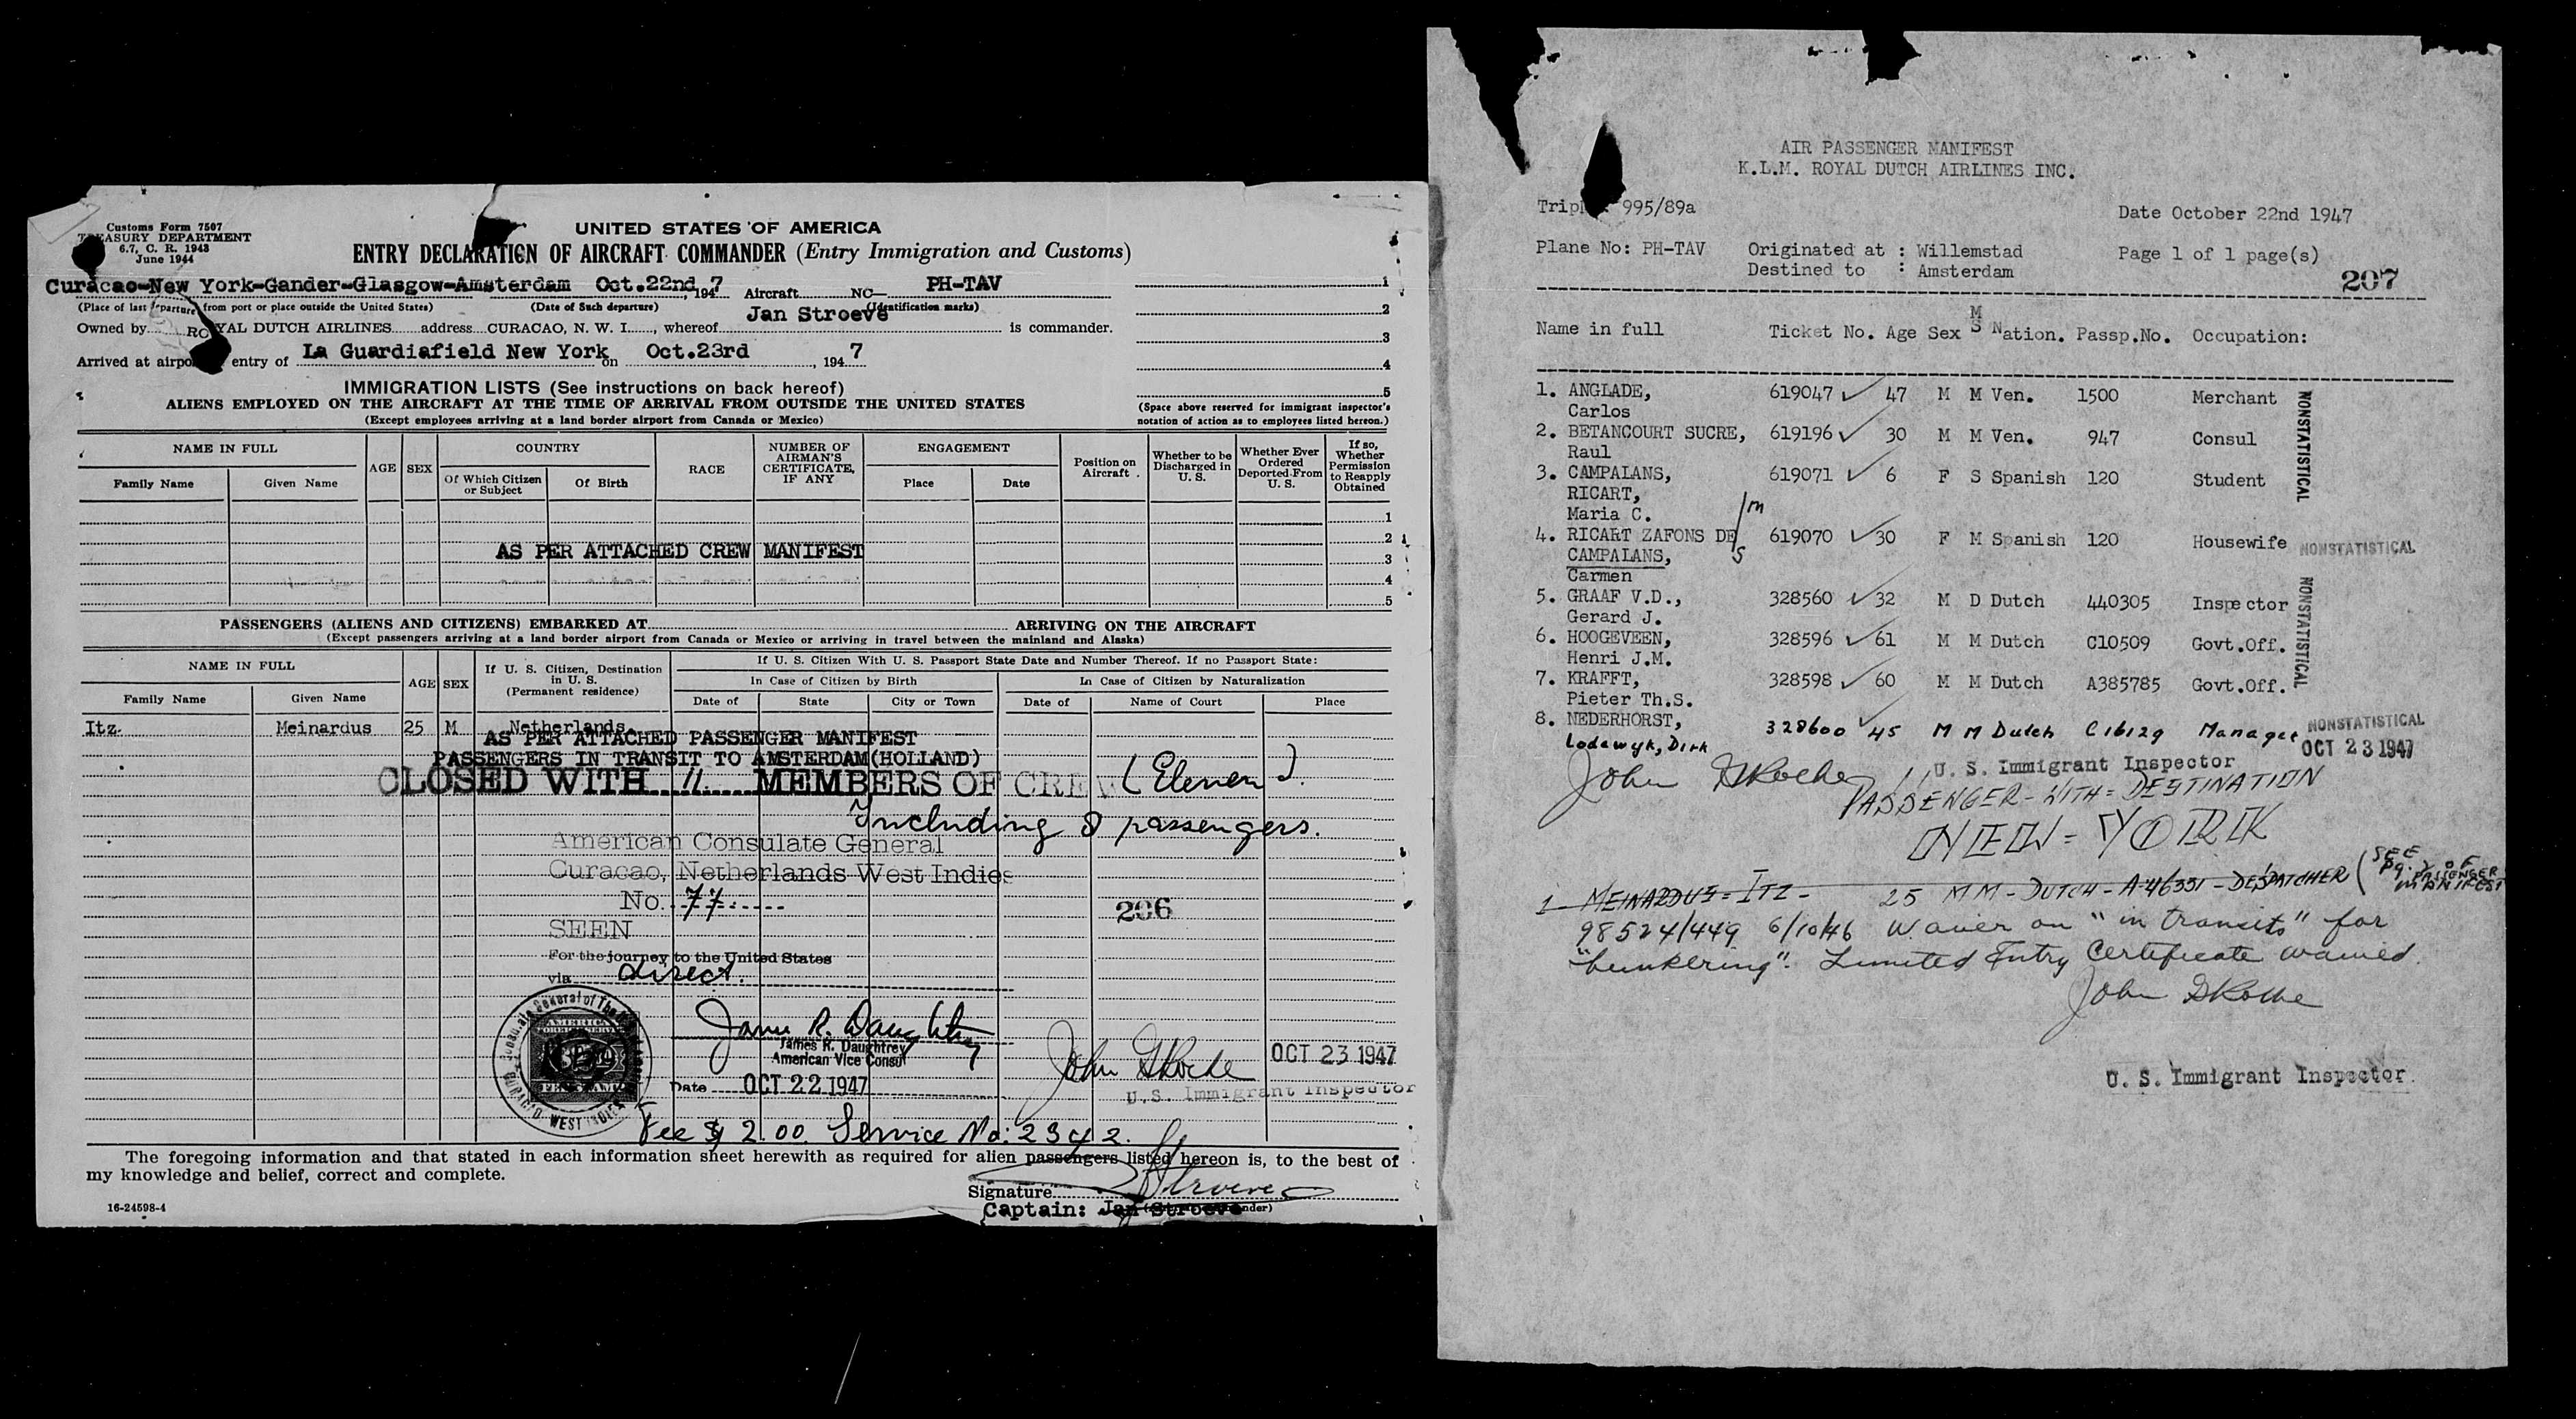 Customs Form 7507
TREASURY DEPARTMENT
6.7, C. R. 1943
June 1944
UNITED STATES OF AMERICA
ENTRY DECLARATION OF AIRCRAFT COMMANDER (Entry Immigration and Customs)
Curacao-New York-Gander-Glasgow-Amsterdam Oct.22nd, 1947 Aircraft NC— PH-TAV
(Place of last departure from port or place outside the United States) (Date of Such departure) (Identification marks)
Jan Stroeve
Owned by ROYAL DUTCH AIRLINES address CURACAO, N. W. I., whereof is commander.
Arrived at airport entry of La Guardiafield New York on Oct.23rd, 1947
1
2
3
4
5
IMMIGRATION LISTS (See instructions on back hereof)
ALIENS EMPLOYED ON THE AIRCRAFT AT THE TIME OF ARRIVAL FROM OUTSIDE THE UNITED STATES
(Except employees arriving at a land border airport from Canada or Mexico)
(Space above reserved for immigrant inspector's
notation of action as to employees listed hereon.)
NAME IN FULL AGE SEX COUNTRY RACE NUMBER OF AIRMAN'S CERTIFICATE, IF ANY ENGAGEMENT Position on Aircraft Whether to be Discharged in U. S. Whether Ever Ordered Deported From U. S. If so, Whether Permission to Reapply Obtained
Family Name Given Name Of Which Citizen or Subject Of Birth Place Date
1
2
AS PER ATTACHED CREW MANIFEST
3
4
5
PASSENGERS (ALIENS AND CITIZENS) EMBARKED AT ARRIVING ON THE AIRCRAFT
(Except passengers arriving at a land border airport from Canada or Mexico or arriving in travel between the mainland and Alaska)
NAME IN FULL AGE SEX If U. S. Citizen, Destination in U. S. (Permanent residence) If U. S. Citizen With U. S. Passport State Date and Number Thereof. If no Passport State:
In Case of Citizen by Birth In Case of Citizen by Naturalization
Family Name Given Name Date of State City or Town Date of Name of Court Place
Itz. Meinardus 25 M Netherlands.
AS PER ATTACHED PASSENGER MANIFEST
PASSENGERS IN TRANSIT TO AMSTERDAM(HOLLAND)
CLOSED WITH 11 MEMBERS OF CREW (Eleven)
Including 8 passengers.
American Consulate General
Curacao, Netherlands West Indies
No. 77.
206
SEEN
For the journey to the United States
via direct.
James R. Daughtrey
James R. Daughtrey
American Vice Consul
Date OCT 22 1947
AMERICAN
FOREIGN SERVICE
FEE STAMP
CURACAO WEST INDIES
John G Roche OCT 23 1947
U.S. Immigrant Inspector
Fee $ 2.00. Service No: 2342.
The foregoing information and that stated in each information sheet herewith as required for alien passengers listed hereon is, to the best of
my knowledge and belief, correct and complete.
Signature JStroeve
Captain: Jan Stroeve
16-24598-4
AIR PASSENGER MANIFEST
K.L.M. ROYAL DUTCH AIRLINES INC.
995/89a
Date October 22nd 1947
Plane No: PH-TAV Originated at : Willemstad Page 1 of 1 page(s)
Destined to : Amsterdam
207
Name in full Ticket No. Age Sex M S Nation. Passp.No. Occupation:
1. ANGLADE, 619047 47 M M Ven. 1500 Merchant
Carlos
2. BETANCOURT SUCRE, 619196 30 M M Ven. 947 Consul
Raul
3. CAMPALANS, 619071 6 F S Spanish 120 Student
RICART,
Maria C.
4. RICART ZAFONS DE 619070 30 F M Spanish 120 Housewife
CAMPALANS,
Carmen
m
s
5. GRAAF V.D., 328560 32 M D Dutch 440305 Inspector
Gerard J.
6. HOOGEVEEN, 328596 61 M M Dutch C10509 Govt.Off.
Henri J.M.
7. KRAFFT, 328598 60 M M Dutch A385785 Govt.Off.
Pieter Th.S.
8. NEDERHORST, 328600 45 M M Dutch C16129 Manager
Lodewyk, Dirk
NONSTATISTICAL
NONSTATISTICAL
NONSTATISTICAL
NONSTATISTICAL
OCT 23 1947
John G Roche U. S. Immigrant Inspector
PASSENGER-WITH=DESTINATION
NEW=YORK
1 MEINARDUS=ITZ- 25 M M-DUTCH-A-46331-DESPATCHER (SEE pg. 2 OF PASSENGER MANIFEST
98524/449 6/10/46 Waiver on "in transits" for
"bunkering". Limited Entry Certificate waived.
John G Roche
U. S. Immigrant Inspector.